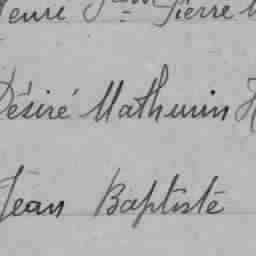 Pierre
Désiré Mathurin
Jean Baptiste